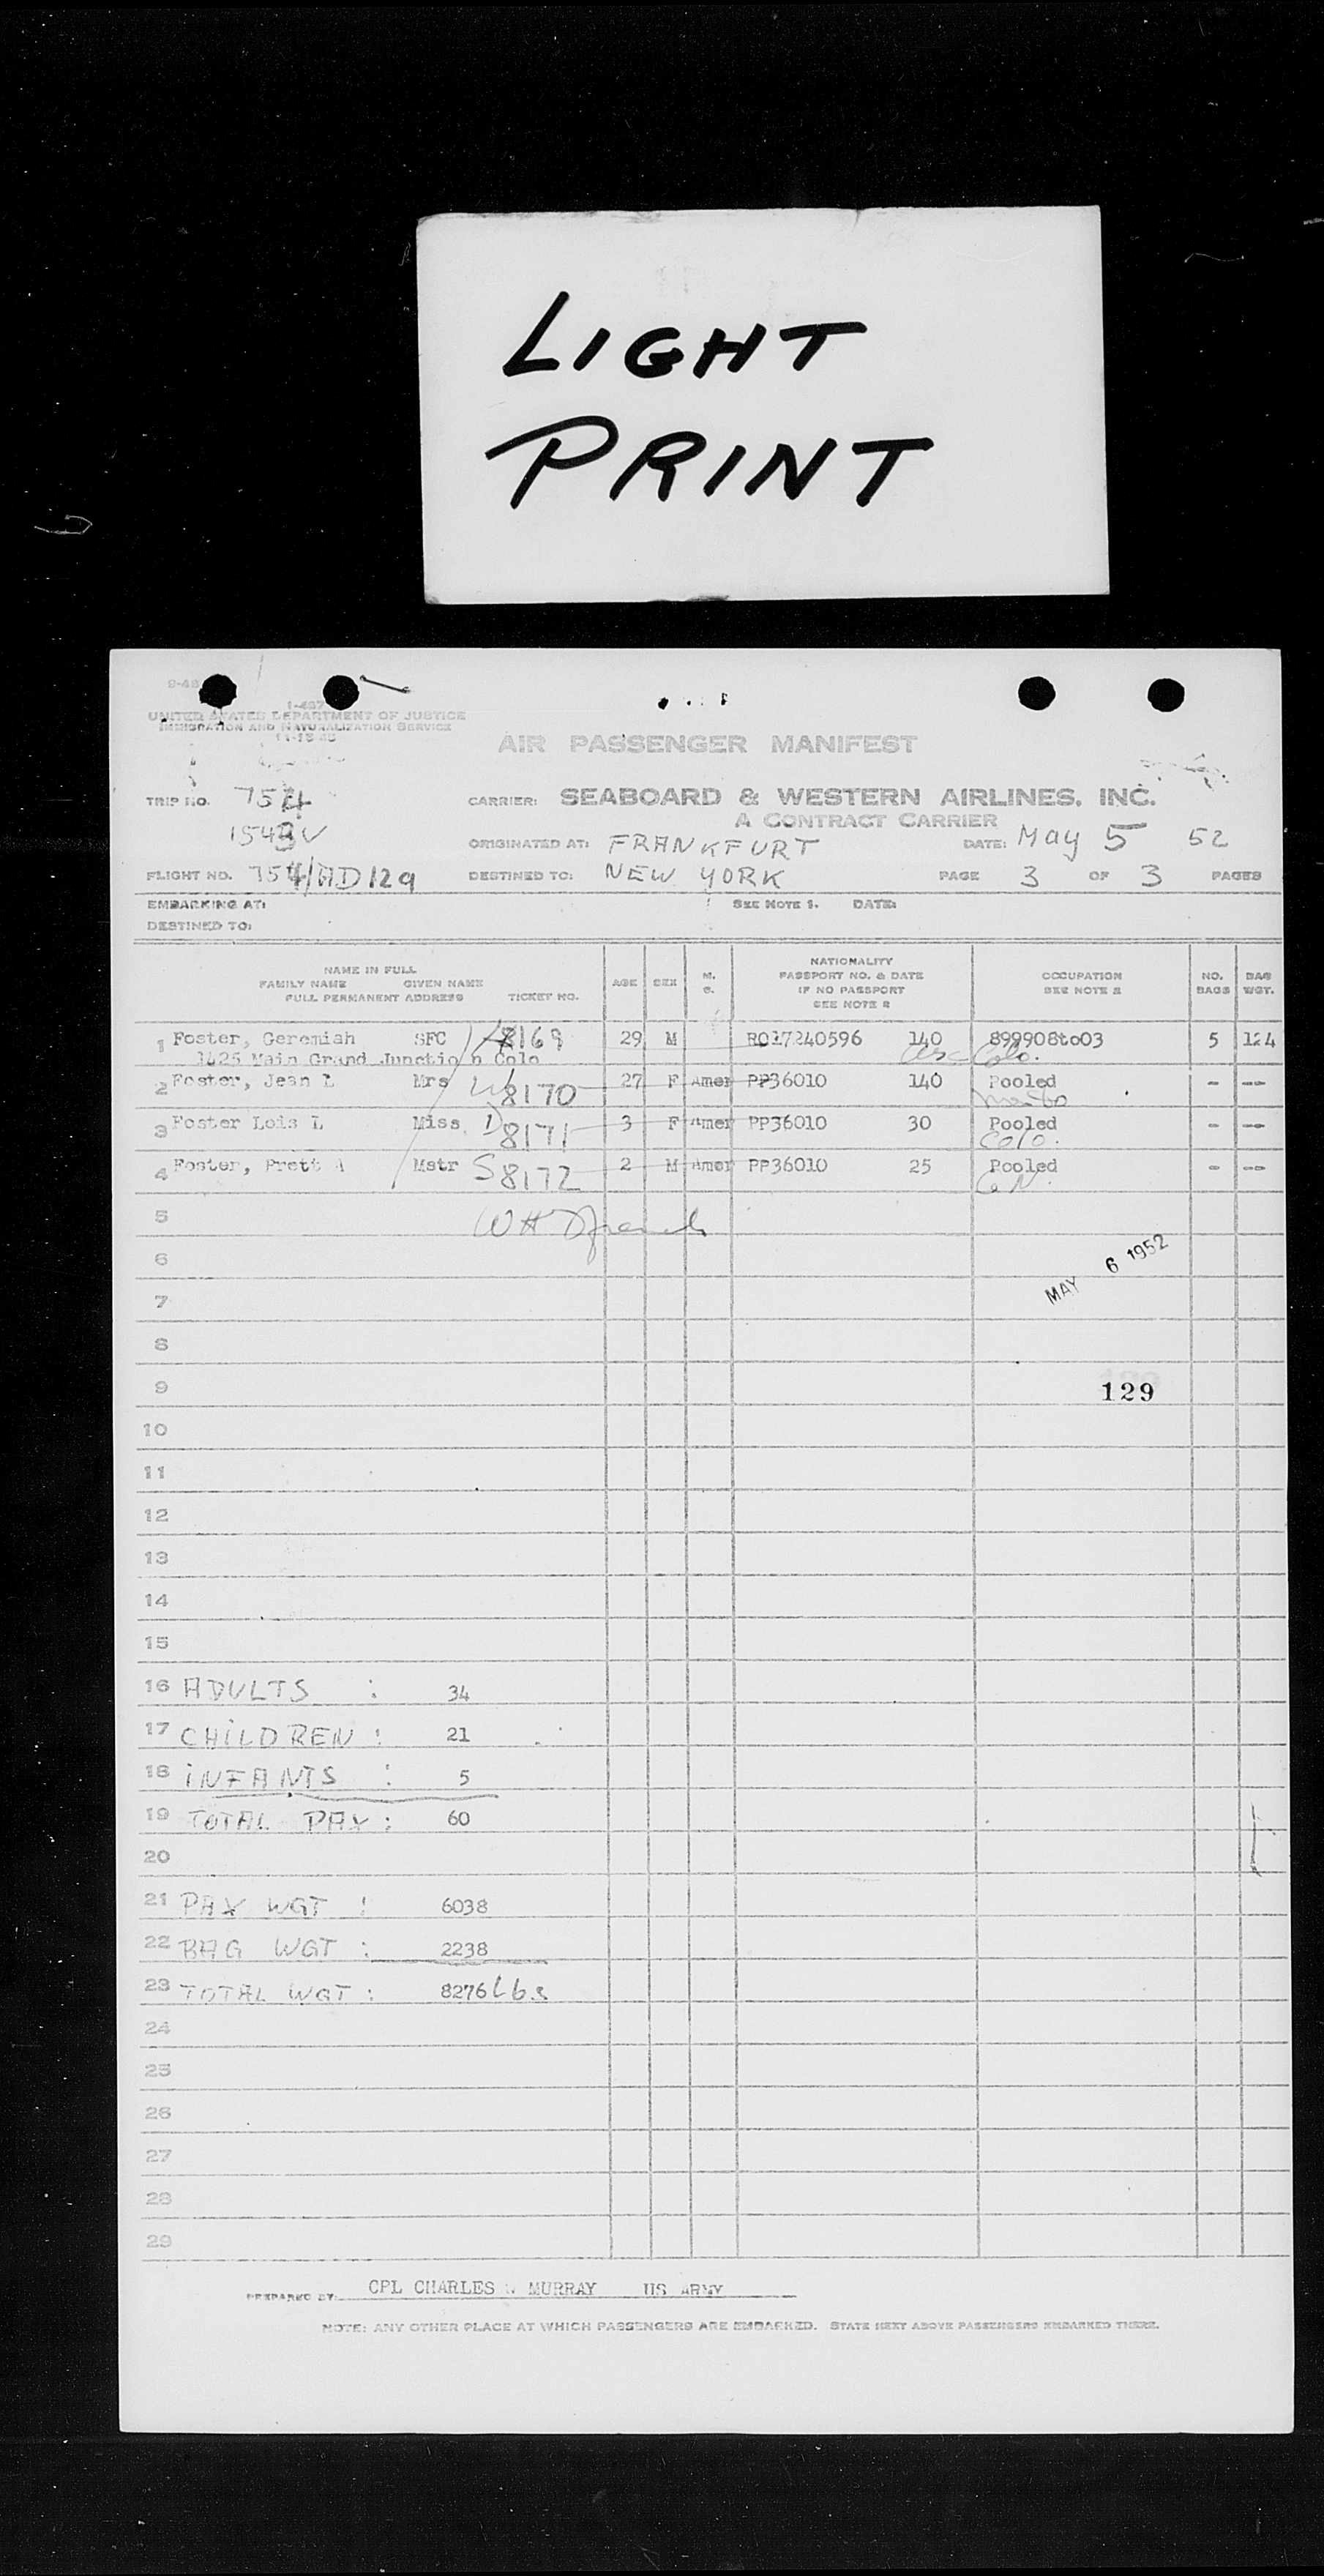 LIGHT
PRINT
I-467
UNITED STATES DEPARTMENT OF JUSTICE
IMMIGRATION AND NATURALIZATION SERVICE
AIR PASSENGER MANIFEST
TRIP NO. 754
CARRIER: SEABOARD & WESTERN AIRLINES, INC.
A CONTRACT CARRIER
1543V
ORIGINATED AT: FRANKFURT DATE: May 5 52
FLIGHT NO. 754/AD129 DESTINED TO: NEW YORK PAGE 3 OF 3 PAGES
EMBARKING AT: SEE NOTE 1. DATE:
DESTINED TO:
NAME IN FULL
FAMILY NAME GIVEN NAME
FULL PERMANENT ADDRESS TICKET NO.
AGE SEX M. S.
NATIONALITY
PASSPORT NO. & DATE
IF NO PASSPORT
SEE NOTE 2
OCCUPATION
SEE NOTE 2
NO. BAGS
BAG WGT.
1 Foster, Geremiah SFC 8169 29 M RO17240596 140 899908to03 5 124
1425 Main Grand Junction Colo Colo.
2 Foster, Jean L Mrs W 8170 27 F Amer PP36010 140 Pooled - --
3 Foster Lois L Miss D 8171 3 F Amer PP36010 30 Pooled - --
Colo.
4 Foster, Prett A Mstr S 8172 2 M Amer PP36010 25 Pooled - --
5
6
MAY 6 1952
7
8
9
129
10
11
12
13
14
15
16 ADULTS : 34
17 CHILDREN : 21
18 INFANTS : 5
19 TOTAL PAX : 60
20
21 PAX WGT : 6038
22 BAG WGT : 2238
23 TOTAL WGT : 8276 Lbs
24
25
26
27
28
29
PREPARED BY: CPL CHARLES MURRAY US ARMY
NOTE: ANY OTHER PLACE AT WHICH PASSENGERS ARE EMBARKED. STATE NEXT ABOVE PASSENGERS EMBARKED THERE.